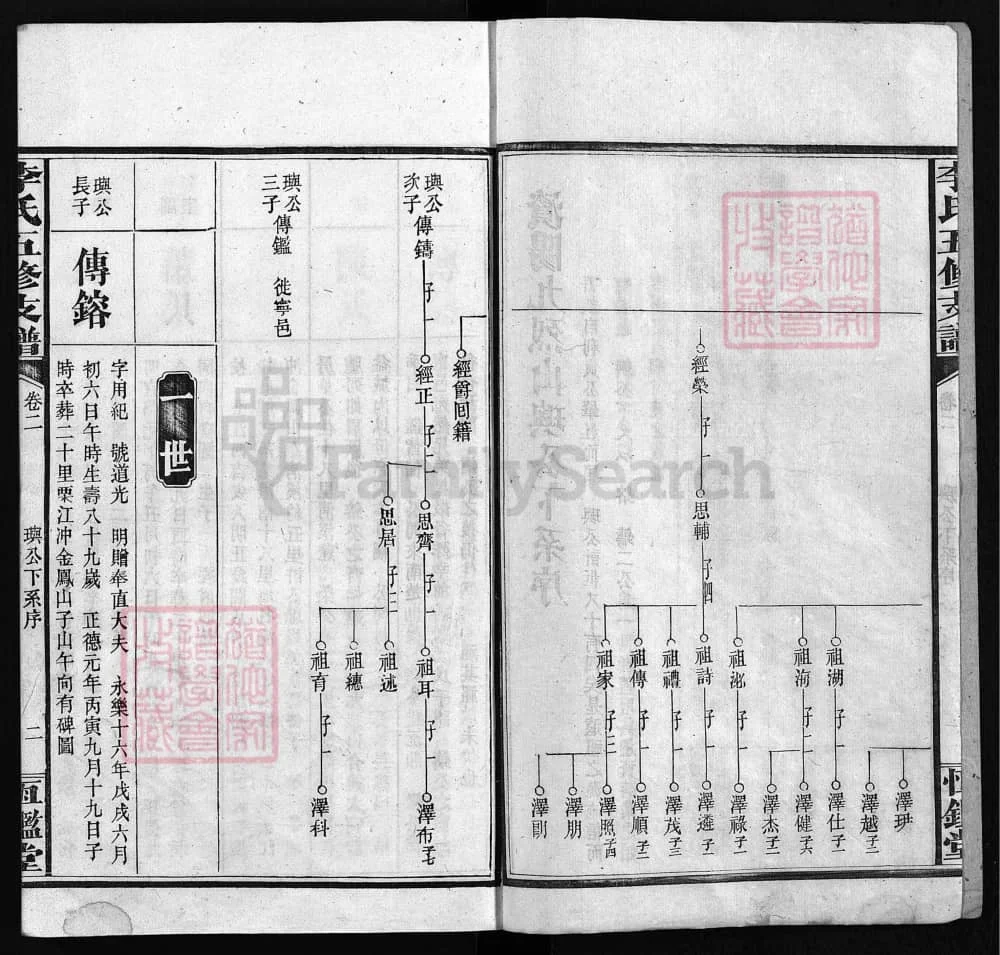 李氏五修支譜
卷二
璵公下系序
恒鑑堂
經榮
子一
思輔
子四
祖湖
子一
祖海
子一
祖泌
子一
祖詩
子一
祖禮
子一
祖傳
子一
祖家
子三
澤珙
澤越 子二
澤仕 子二
澤健 子六
澤杰 子二
澤祿 子一
澤遴 子二
澤茂 子三
澤順 子二
澤照 子四
澤朋
澤剛
經爵 回籍
璵公次子
傳鑄
子一
經正
子二
思齊
子一
祖耳
子一
澤布 子七
思居
子三
祖述
祖穗
祖育
子一
澤科
璵公三子
傳鑑 徙寧邑
一世
璵公長子
傳鎔
字用紀 號道光 明贈奉直大夫 永樂十六年戊戌六月
初六日午時生壽八十九歲 正德元年丙寅九月十九日子
時卒葬二十里栗江冲金鳳山子山午向有碑圖
李氏五修支譜
卷二
璵公下系序
二
恒鑑堂
FamilySearch